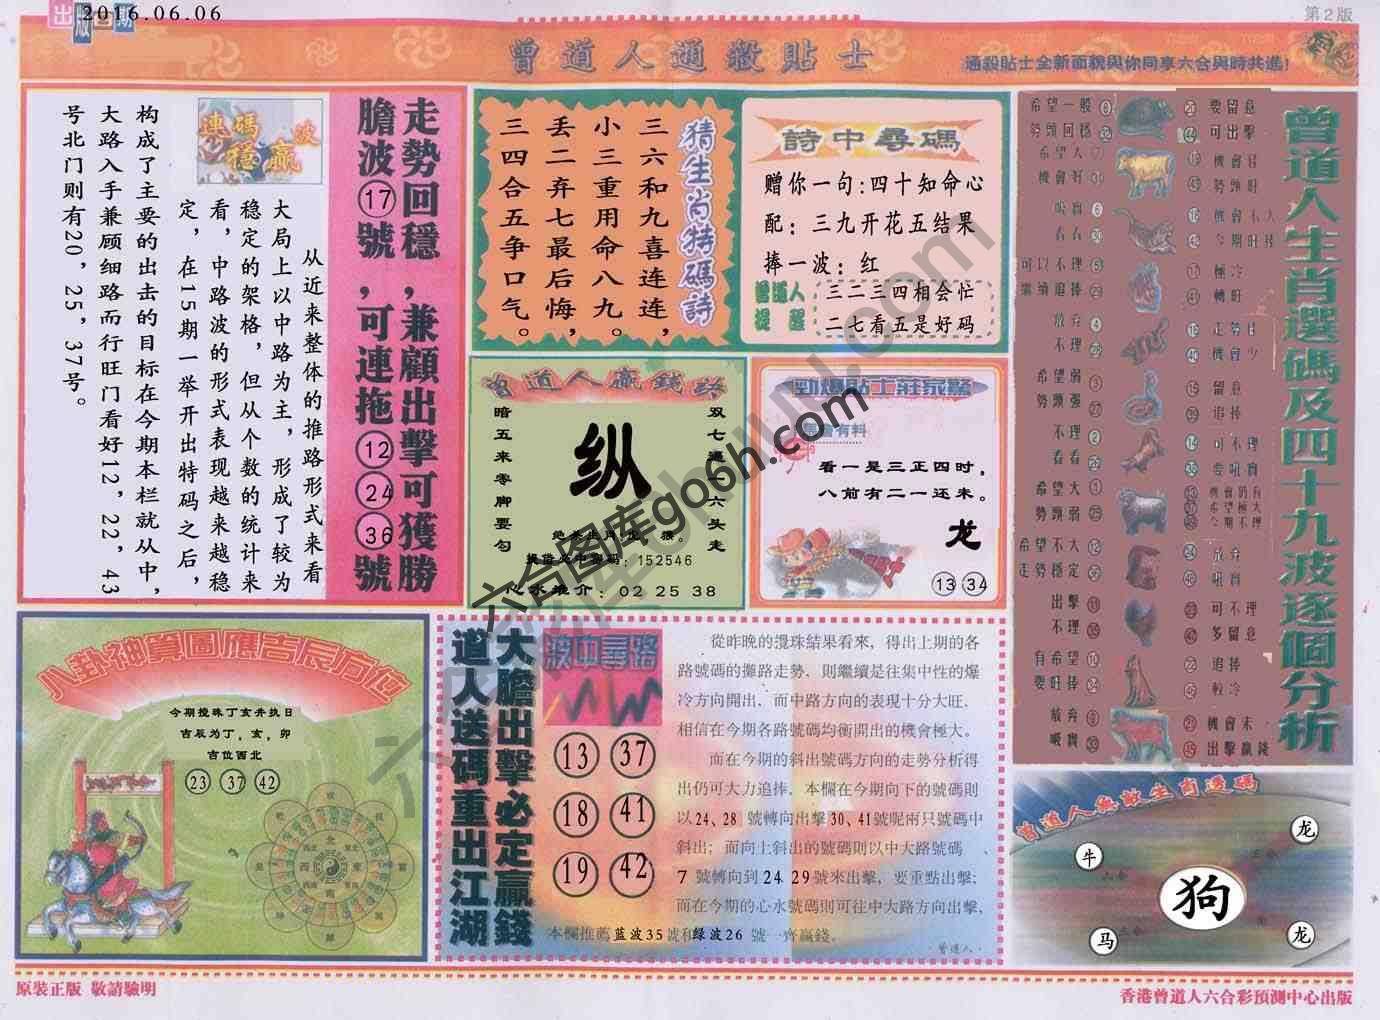 出版日期
2016.06.06
第2版
曾道人通殺貼士
通殺貼士全新面貌與你同享六合與時共進!
走勢回穩,兼顧出擊可獲勝
膽波⑰號,可連拖⑫㉔㊱號
連碼波
穩贏
从近来整体的推路形式来看
大局上以中路为主，形成了较为
稳定的架格，但从个数的统计来
看，中路波的形式表现越来越稳
定，在15期一举开出特码之后，
构成了主要的出击的目标在今期本栏就从中，
大路入手兼顾细路而行旺门看好12，22，43
号北门则有20，25，37号。
猜生肖特碼詩
三六和九喜连连，
小三重用命八九。
丢二弃七最后悔，
三四合五争口气。
詩中尋碼
赠你一句:四十知命心
配：三九开花五结果
捧一波：红
曾道人
提醒
三二三四相会忙
二七看五是好码
曾道人贏錢路
双七遇一六头走
暗五来零脚要勾
纵
152546
心水推介：02 25 38
勁爆貼士莊家驚
看一是三正四时，
八前有二一还未。
龙
13 34
曾道人生肖選碼及四十九波逐個分析
希望一般
勢頭回穩
要留意
可出擊
希望大
機會好
勢頭旺
可以不理
繼續追捧
極冷
轉旺
放弃
不理
機會少
希望弱
勢頭强
留意
追捧
不理
看看
可不理
要吼實
希望大
勢頭弱
希望極大
今期不理
希望不大
走勢穩定
放弃
吼實
出擊
不理
可不理
多留意
有希望
要旺捧
追捧
較冷
放弃
吸實
機會末
出擊贏錢
八卦神算圖應吉辰方位
今期搅珠丁亥并执日
吉辰为丁，亥，卯
吉位西北
23 37 42
大膽出擊必定贏錢
道人送碼重出江湖
波中尋路
13 37
18 41
19 42
從昨晚的攪珠結果看來，得出上期的各
路號碼的攤路走勢，則繼續是往集中性的爆
冷方向開出，而中路方向的表現十分大旺，
相信在今期各路號碼均衡開出的機會極大。
而在今期的斜出號碼方向的走勢分析得
出仍可大力追捧，本欄在今期向下的號碼則
以24、28 號轉向出擊30、41號呢兩只號碼中
斜出；而向上斜出的號碼則以中大路號碼
7 號轉向到24 29號來出擊，要重點出擊；
而在今期的心水號碼則可往中大路方向出擊，
本欄推薦 蓝波35號和绿波26 號一齊贏錢。
·曾道人·
曾道人無敵生肖選碼
龙
牛
狗
马
龙
原裝正版 敬請驗明
香港曾道人六合彩預測中心出版
六合图库go6h.com